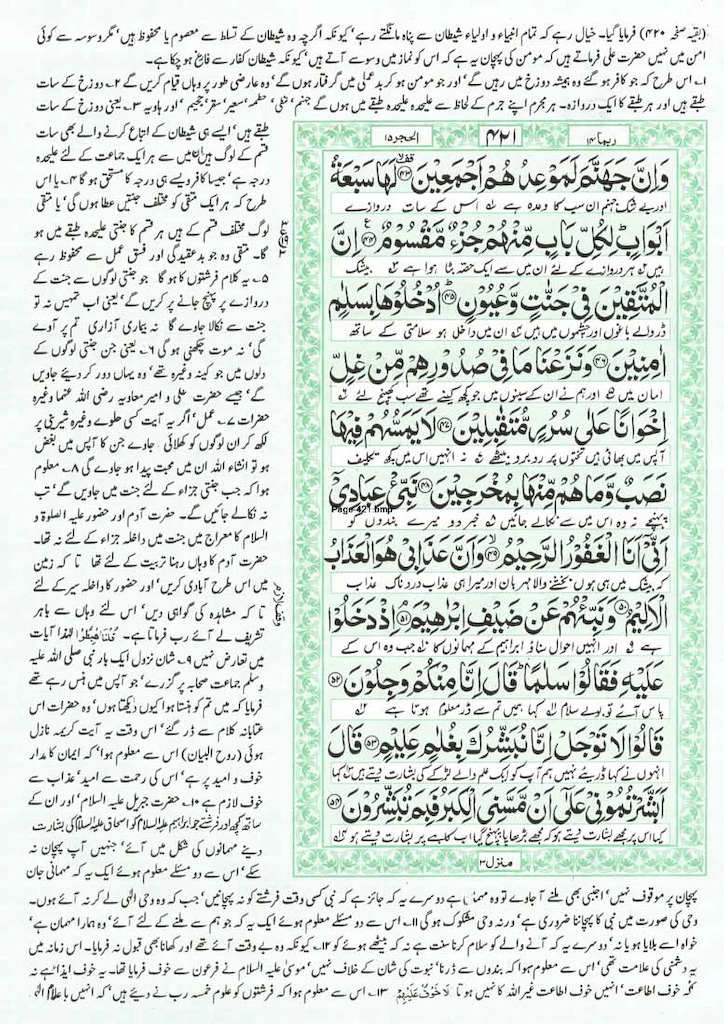 (بقیہ صفحہ ۴۲۰) فرمایا گیا۔ خیال رہے کہ تمام انبیاء و اولیاء شیطان سے پناہ مانگتے رہے' کیونکہ اگرچہ وہ شیطان کے تسلط سے معصوم یا محفوظ ہیں' مگر وسوسہ سے کوئی
امن میں نہیں حضرت علی فرماتے ہیں کہ مومن کی پہچان یہ ہے کہ اس کو نماز میں وسوسے آتے ہیں' کیونکہ شیطان کفار سے فارغ ہو چکا ہے۔
۱۔ اس طرح کہ جو کافر ہو گئے وہ ہمیشہ دوزخ میں رہیں گے' اور جو مومن ہو کر بدعملی میں گرفتار ہوں گے' وہ عارضی طور پر وہاں قیام کریں گے ۲۔ دوزخ کے سات
طبقے ہیں اور ہر طبقے کا ایک دروازہ۔ ہر مجرم اپنے جرم کے لحاظ سے علیحدہ علیحدہ طبقے میں ہوں گے جہنم' لظی' حطمہ' سعیر' سقر' جحیم' اور ہاویہ ۳۔ یعنی دوزخ کے سات
ربما ۱۴
۴۲۱
الحجر ۱۵
وَاِنَّ جَهَنَّمَ لَمَوْعِدُهُمْ اَجْمَعِيْنَ ﴿۴۳﴾ لَهَا سَبْعَةُ
اور بے شک جہنم ان سب کا وعدہ ہے اس کے سات دروازے
اَبْوَابٍ لِكُلِّ بَابٍ مِّنْهُمْ جُزْءٌ مَّقْسُوْمٌ ﴿۴۴﴾ اِنَّ
ہیں ہر دروازے کے لئے ان میں سے ایک حصہ بٹا ہوا ہے بیشک
الْمُتَّقِيْنَ فِيْ جَنّٰتٍ وَّعُيُوْنٍ ﴿۴۵﴾ اُدْخُلُوْهَا بِسَلٰمٍ
ڈر والے باغوں اور چشموں میں ہیں ان میں داخل ہو سلامتی کے ساتھ
اٰمِنِيْنَ ﴿۴۶﴾ وَنَزَعْنَا مَا فِيْ صُدُوْرِهِمْ مِّنْ غِلٍّ
امان میں اور ہم نے ان کے سینوں میں جو کچھ کینے تھے سب کھینچ لئے
اِخْوَانًا عَلٰى سُرُرٍ مُّتَقٰبِلِيْنَ ﴿۴۷﴾ لَا يَمَسُّهُمْ فِيْهَا
آپس میں بھائی ہیں تختوں پر رو برو بیٹھے نہ انہیں اس میں کچھ تکلیف
نَصَبٌ وَّمَا هُمْ مِّنْهَا بِمُخْرَجِيْنَ ﴿۴۸﴾ نَبِّئْ عِبَادِيْٓ
Page-421.bmp
پہنچے نہ وہ اس میں سے نکالے جائیں خبر دو میرے بندوں کو
اَنِّيْٓ اَنَا الْغَفُوْرُ الرَّحِيْمُ ﴿۴۹﴾ وَاَنَّ عَذَابِيْ هُوَ الْعَذَابُ
کہ بیشک میں ہی ہوں بخشنے والا مہربان اور میرا ہی عذاب دردناک عذاب
الْاَلِيْمُ ﴿۵۰﴾ وَنَبِّئْهُمْ عَنْ ضَيْفِ اِبْرٰهِيْمَ ﴿۵۱﴾ اِذْ دَخَلُوْا
ہے اور انہیں احوال سناؤ ابراہیم کے مہمانوں کا جب وہ اس کے
عَلَيْهِ فَقَالُوْا سَلٰمًا قَالَ اِنَّا مِنْكُمْ وَجِلُوْنَ ﴿۵۲﴾
پاس آئے تو بولے سلام کہا ہمیں تم سے ڈر معلوم ہوتا ہے
قَالُوْا لَا تَوْجَلْ اِنَّا نُبَشِّرُكَ بِغُلٰمٍ عَلِيْمٍ ﴿۵۳﴾ قَالَ
انہوں نے کہا ڈریئے نہیں ہم آپ کو ایک علم والے لڑکے کی بشارت دیتے ہیں کہا
اَبَشَّرْتُمُوْنِيْ عَلٰٓى اَنْ مَّسَّنِيَ الْكِبَرُ فَبِمَ تُبَشِّرُوْنَ ﴿۵۴﴾
کیا اس پر مجھے بشارت دیتے ہو کہ مجھے بڑھاپا پہنچ گیا اب کاہے پر بشارت دیتے ہو
منزل ۳
طبقے ہیں' ایسے ہی شیطان کے اتباع کرنے والے بھی سات
قسم کے لوگ ہیں ان میں سے ہر ایک جماعت کے لئے علیحدہ
درجہ ہے' جیسا کافر ویسے ہی درجہ کا مستحق ہو گا ۴۔ یا اس
طرح کہ ہر ایک متقی کو مختلف جنتیں عطا ہوں گی' یا متقی
لوگ مختلف قسم کے ہیں ہر قسم کا جنتی علیحدہ طبقے میں ہو
گا۔ متقی وہ جو بدعقیدگی اور فسق عمل سے محفوظ رہے
۵۔ یہ کلام فرشتوں کا ہو گا جو جنتی لوگوں سے جنت کے
دروازے پر پہنچ جانے پر کریں گے' یعنی اب تمہیں نہ تو
جنت سے نکالا جاوے گا نہ بیماری آزاری تم پر آوے
گی' نہ موت چکھنی ہو گی ۶۔ یعنی جن جنتی لوگوں کے
دلوں میں جو کینہ وغیرہ تھے' وہ یہاں دور کر دیئے جاویں
گے' جیسے حضرت علی و امیر معاویہ رضی اللہ عنہما وغیرہ
حضرات ۷۔ عمل' اگر یہ آیت کسی حلوے وغیرہ شیرینی پر
لکھ کر ان لوگوں کو کھلائی جاوے جن کا آپس میں بغض
ہو تو انشاء اللہ ان میں محبت پیدا ہو جاوے گی ۸۔ معلوم
ہوا کہ جب جنتی جزاء کے لئے جنت میں جاویں گے' تب
نہ نکالے جائیں گے۔ حضرت آدم اور حضور علیہ الصلوۃ و
السلام کا معراج میں جنت میں داخلہ جزاء کے لئے نہ تھا۔
حضرت آدم کا وہاں رہنا تربیت کے لئے تھا تا کہ زمین
میں اس طرح آبادی کریں' اور حضور کا داخلہ سیر کے لئے
تا کہ مشاہدہ کی گواہی دیں' اس لئے وہاں سے باہر
تشریف لے آئے رب فرماتا ہے۔ قُلْنَا اهْبِطُوْا لہٰذا آیات
میں تعارض نہیں ۹۔ شان نزول ایک بار نبی صلی اللہ علیہ
وسلم جماعت صحابہ پر گزرے' جو آپس میں ہنس رہے تھے
فرمایا کہ میں تم کو ہنستا ہوا کیوں دیکھتا ہوں' وہ حضرات اس
عتابانہ کلام سے ڈر گئے' اس وقت یہ آیت کریمہ نازل
ہوئی (روح البیان) اس سے معلوم ہوا' کہ ایمان کا مدار
خوف و امید پر ہے' اس کی رحمت سے امید' عذاب سے
خوف لازم ہے ۱۰۔ حضرت جبریل علیہ السلام' اور ان کے
ساتھ کچھ اور فرشتے جو ابراہیم علیہ السلام کو اسحاق علیہ السلام کی بشارت
دینے مہمانوں کی شکل میں آئے' جنہیں آپ پہچان نہ
سکے' اس سے دو مسئلے معلوم ہوئے ایک یہ کہ مہمانی جان
پہچان پر موقوف نہیں' اجنبی بھی ملنے آ جاوے تو وہ مہمان ہے دوسرے یہ کہ جائز ہے کہ نبی کسی وقت فرشتے کو نہ پہچانیں' جب کہ وہ وحی الٰہی لے کر نہ آئے ہوں۔
وحی کی صورت میں نبی کا پہچاننا ضروری ہے' ورنہ وحی مشکوک ہو گی ۱۱۔ اس سے دو مسئلے معلوم ہوئے ایک یہ کہ جو ہم سے ملنے کے لئے آئے' وہ ہمارا مہمان ہے'
خواہ اسے بلایا ہو یا نہ' دوسرے یہ کہ آنے والے کو سلام کرنا سنت ہے نہ کہ بیٹھے ہوئے کو ۱۲۔ کیونکہ وہ بے وقت آئے تھے اور کھانا بھی قبول نہ فرمایا۔ اس زمانہ میں
یہ دشمنی کی علامت تھی' اس سے معلوم ہوا کہ بندوں سے ڈرنا' نبوت کی شان کے خلاف نہیں' موسیٰ علیہ السلام نے فرعون سے خوف فرمایا تھا۔ یہ خوف ایذا ہے نہ
کہ خوف اطاعت' انہیں خوف اطاعت غیر اللہ کا نہیں ہوتا لَا خَوْفٌ عَلَيْهِمْ ۱۳۔ اس سے معلوم ہوا کہ فرشتوں کو علوم خمسہ رب نے دیئے ہیں' کہ انہیں باعلام الٰہی